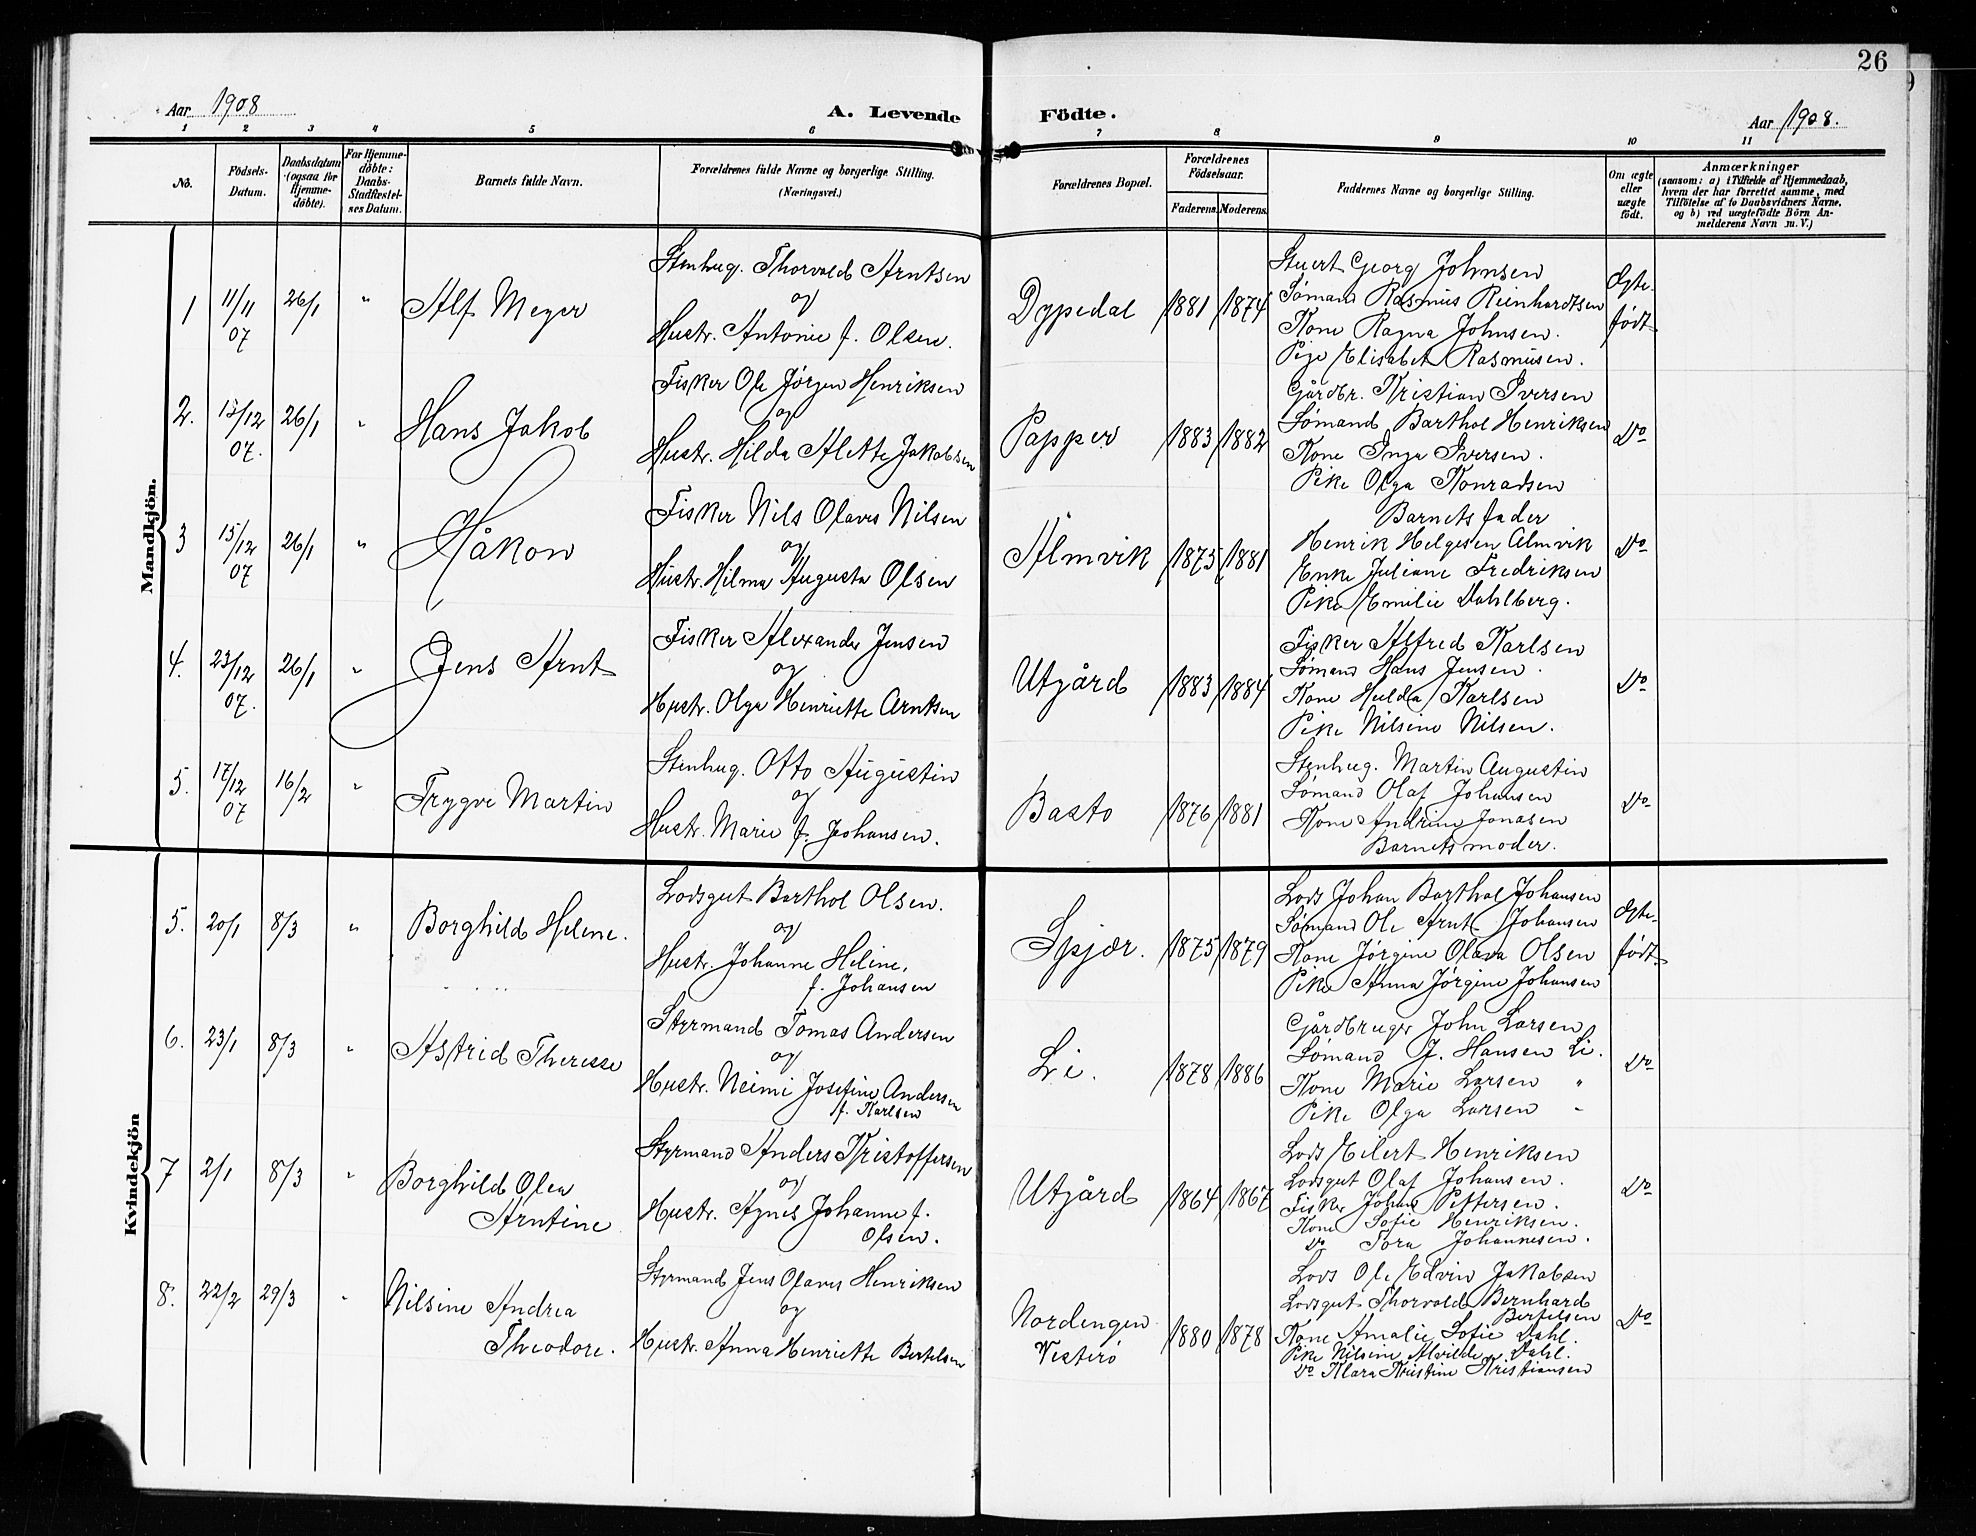 26
Aar 1908
A. Levende
Födte.
Aar 1908.
1 2 3 4 5 6 7 8 9 10 11
No.
Födsels-
Datum.
Daabsdatum
(ogsaa for
Hjemme-
döbte).
For Hjemme-
döbte:
Daabs-
Stadfæstel-
ses Datum.
Barnets fulde Navn.
Forældrenes fulde Navne og borgerlige Stilling.
(Næringsvei.)
Forældrenes Bopæl.
Forældrenes
Födselsaar.
Faderens.
Moderens.
Faddernes Navne og borgerlige Stilling.
Om ægte
eller
uægte
födt.
Anmærkninger
(saasom: a) i Tilfælde af Hjemmedaab,
hvem der har forrettet samme, med
Tilföielse af to Daabsvidners Navne,
og b) ved uægtefödte Börn An-
melderens Navn m. V.)
Mandkjön.
1
11/11
07
26/1
"
Alf Meyer
Stenhug. Thorvald Arntsen
og
Hustr. Antonie f. Olsen.
Dypedal
1881
1874
Stuert Georg Johnsen
Sømand Rasmus Reinhardtsen
Kone Ragna Johnsen.
Pige Elisabet Rasmusen.
Ægte-
født
2.
15/12
07.
26/1
"
Hans Jakob
Fisker Ole Jørgen Henriksen
og
Hustr. Hilda Alette Jakobsen
Papper
1883
1882
Gårdbr. Kristian Iversen
Sømand Barthol Henriksen
Kone Inga Iversen.
Pike Olga Konradsen
Do
3
15/12
07
26/1
"
Håkon
Fisker Nils Olaves Nilsen
og
Hustr. Hilma Augusta Olsen
Almvik
1875
1881
Barnets fader
Henrik Helgesen Almvik
Enke Juliane Fredriksen
Pike Emilie Dahlberg.
Do
4.
23/12
07.
26/1
"
Jens Arnt
Fisker Alexander Jensen
og
Hustr. Olga Henriette Arntsen
Utgård
1883
1884
Fisker Alfred Karlsen
Sømand Hans Jensen.
Kone Hulda Karlsen
Pike Nilsine Nilsen.
Do
5.
17/12
07
16/2
"
Trygve Martin
Stenhug. Otto Augustin
og
Hustr. Marie f. Johansen.
Basto
1876
1881
Stenhug. Martin Augustin
Sømand Olaf Johansen
Kone Andrine Jonasen
Barnets moder.
Do
Kvindekjön
5.
20/1
8/3
"
Borghild Helene.
Lodsgut Barthol Olsen.
og
Hustr. Johanne Heline,
f. Johansen
Spjær.
1875
1879
Lods Johan Barthol Johansen
Sømand Ole Arnt Johansen
Kone Jørgine Olava Olsen
Pike Anna Jørgine Johansen
Ægte-
født.
6.
23/1
8/3
"
Astrid Theresse
Styrmand Tomas Andersen
og
Hustr. Neimi Josefine Andersen
f. Karlsen
Li.
1878
1886
Gårdbruger John Larsen
Sømand J. Hansen Li.
Kone Marie Larsen "
Pike Olga Larsen "
Do
7
2/1
8/3
"
Borghild Olea
Arntine
Styrmand Anders Kristoffersen
og
Hustr. Agnes Johanne f.
Olsen.
Utgård
1864
1867
Lods Eilert Henriksen
Lodsgut Olaf Johansen.
Fisker Johans Pettersen.
Kone Sofie Henriksen.
Do Tora Johannesen.
Do
8.
22/2
29/3
"
Nilsine Andrea
Theodore.
Styrmand Jens Olaves Henriksen
og
Hustr. Anna Henriette Bertelsen
Nordengen
Vesterø
1880
1878
Lods Ole Edvin Jakobsen
Lodsgut Thorvald Bernhard
Bertelsen
Kone Amalie Sofie Dahl.
Pike Nilsine Alvilde Dahl.
Do Klara Kristine Kristiansen
Do